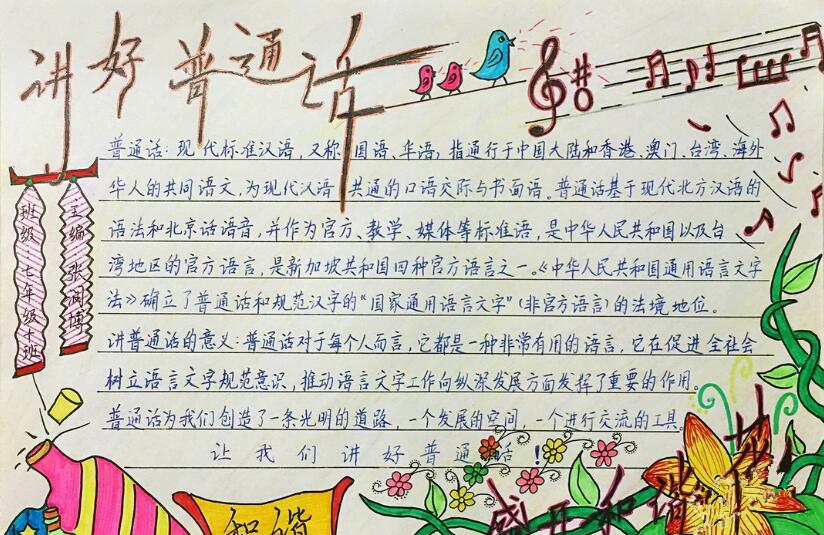 讲好普通话
普通话：现代标准汉语，又称国语、华语，指通行于中国大陆和香港、澳门、台湾、海外
华人的共同语文，为现代汉语共通的口语交际与书面语。普通话基于现代北方汉语的
语法和北京话语音，并作为官方、教学、媒体等标准语，是中华人民共和国以及台
湾地区的官方语言，是新加坡共和国四种官方语言之一。《中华人民共和国通用语言文字
法》确立了普通话和规范汉字的“国家通用语言文字”(非官方语言)的法境地位。
讲普通话的意义：普通话对于每个人而言，它都是一种非常有用的语言，它在促进全社会
树立语言文字规范意识，推动语言文字工作向纵深发展方面发挥了重要的作用。
普通话为我们创造了一条光明的道路，一个发展的空间，一个进行交流的工具。
让我们讲好普通话！
主编 张闵博
班级 七年级十班
和谐
盛开和谐花